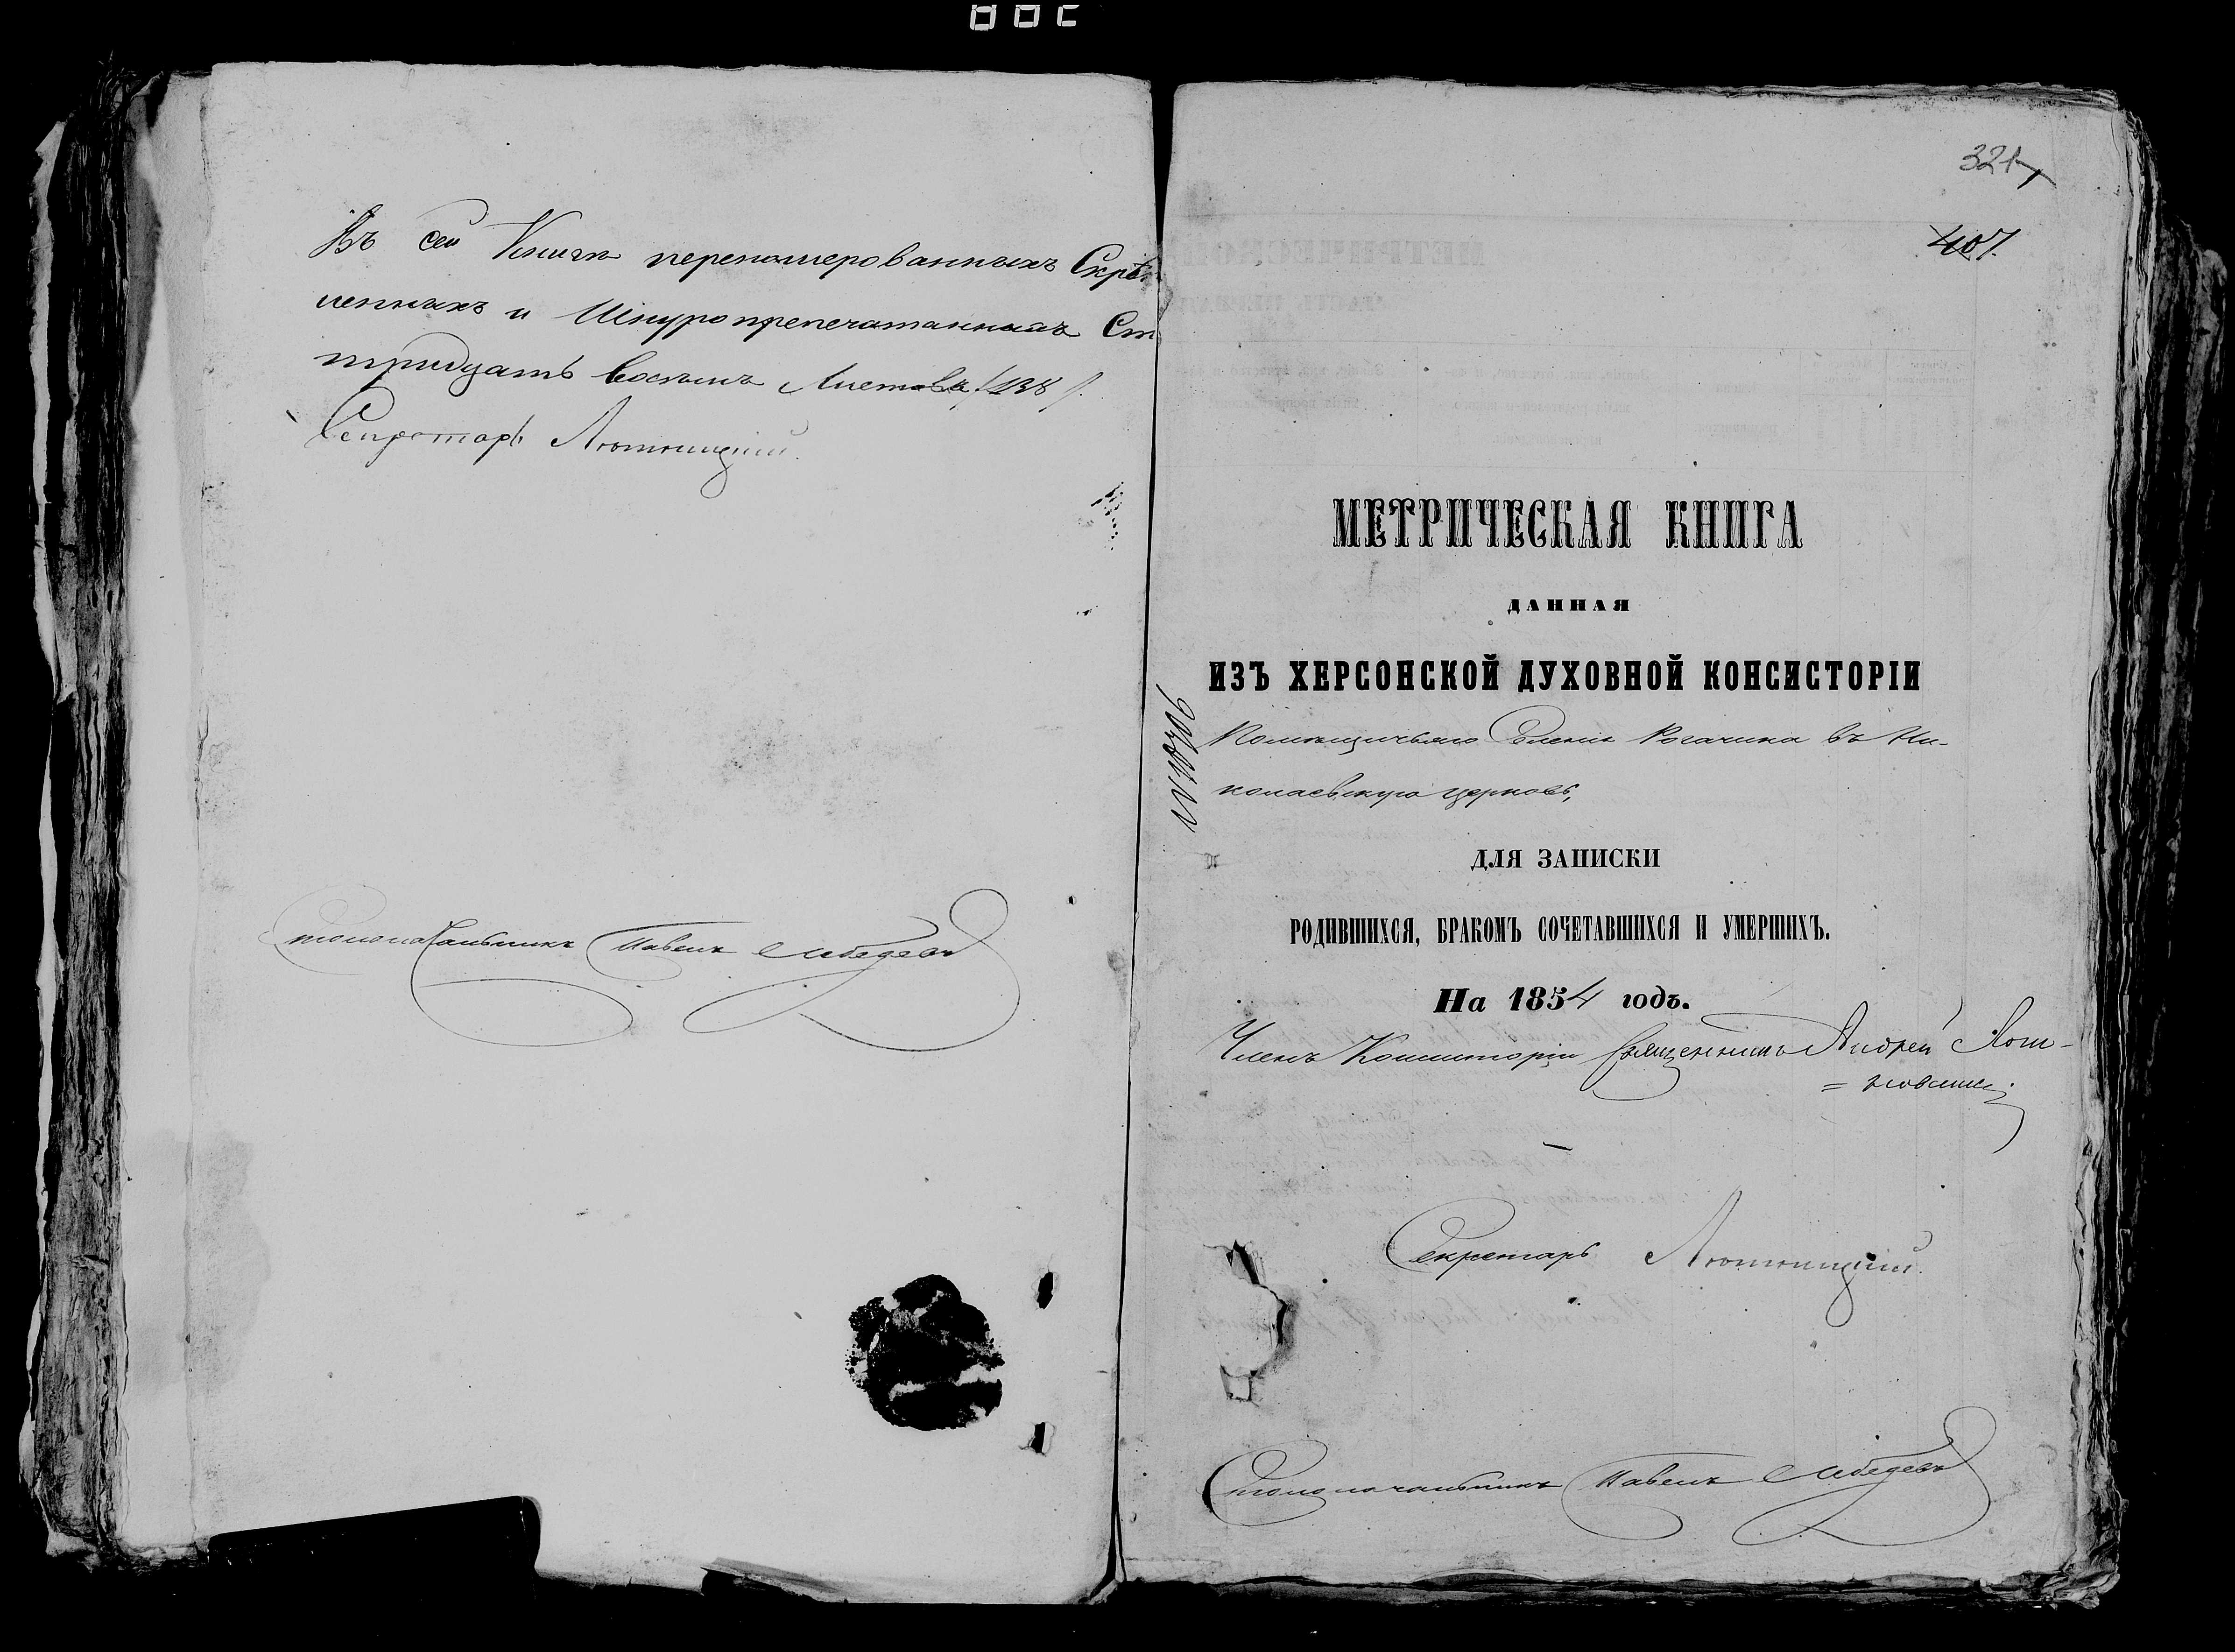 Въ сей Книгѣ перенумерованныхъ Скрѣп
ленныхъ и Шнуропрепечатанныхъ Ст
тридцать восьмъ Листовъ /138/.
Секретарь Лютницкій.
Столоначальникъ Павелъ Лебедевъ
321
407.
МЕТРИЧЕСКАЯ КНИГА
ДАННАЯ
ИЗЪ ХЕРСОНСКОЙ ДУХОВНОЙ КОНСИСТОРІИ
Помѣщичьяго Селенія Рогачика въ Ни-
колаевскую церковь,
ДЛЯ ЗАПИСКИ
РОДИВШИХСЯ, БРАКОМЪ СОЧЕТАВШИХСЯ И УМЕРШИХЪ.
На 1854 годъ.
Членъ Консисторіи Священникъ Андрей
Секретарь Лютницкій.
Столоначальникъ Павелъ Лебедевъ